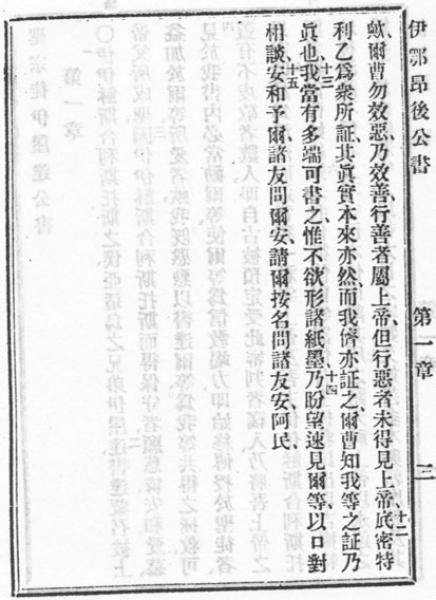 伊鄂昂後公書 第一章 三
歟爾曹勿效惡、乃效善、行善者屬上帝、但行惡者未得見上帝、十二底密特
利乙爲衆所証、其眞實本來亦然、而我儕亦証之、爾曹知我等之証乃
眞也、十三我當有多端可書之、惟不欲形諸紙墨、十四乃盼望速見爾等、以口對
相談、十五安和予爾、諸友問爾安、請爾按名問諸友安、阿民、